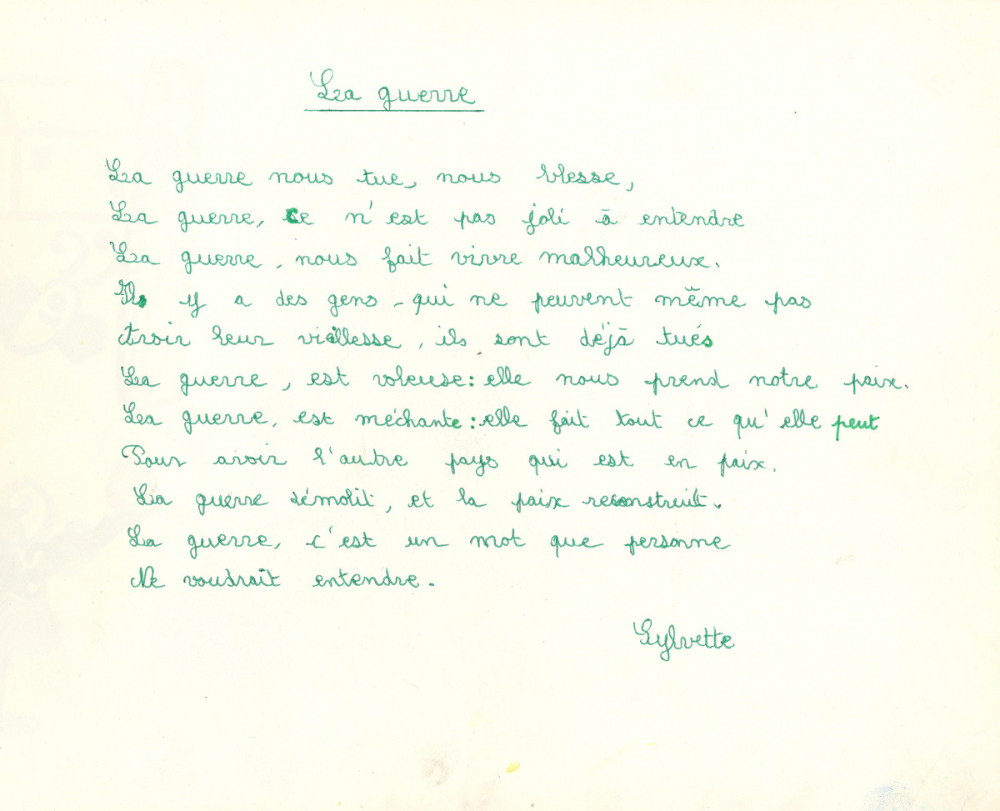 La guerre
La guerre nous tue, nous blesse,
La guerre, ce n'est pas joli à entendre
La guerre, nous fait vivre malheureux.
Ils y a des gens - qui ne peuvent même pas
Avoir leur viellesse, ils sont déjà tués
La guerre, est voleuse : elle nous prend notre paix.
La guerre, est méchante : elle fait tout ce qu'elle peut
Pour avoir l'autre pays qui est en paix.
La guerre démolit, et la paix reconstruit.
La guerre, c'est un mot que personne
Ne voudrait entendre.
Sylvette